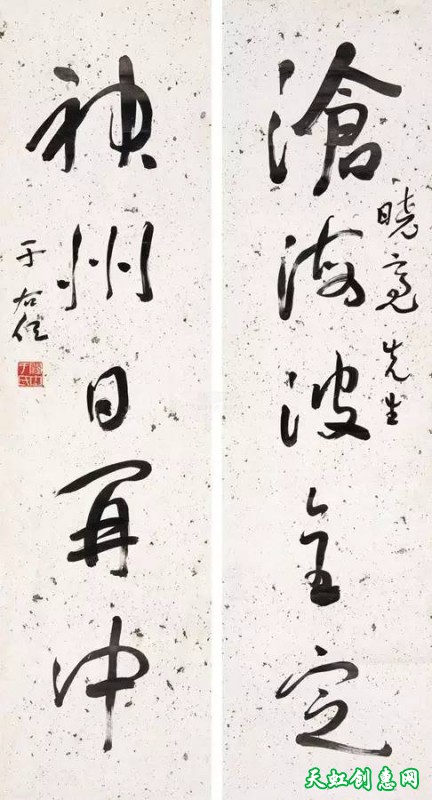 滄海波全定
曉亮先生
神州日再中
于右任
天虹创意网